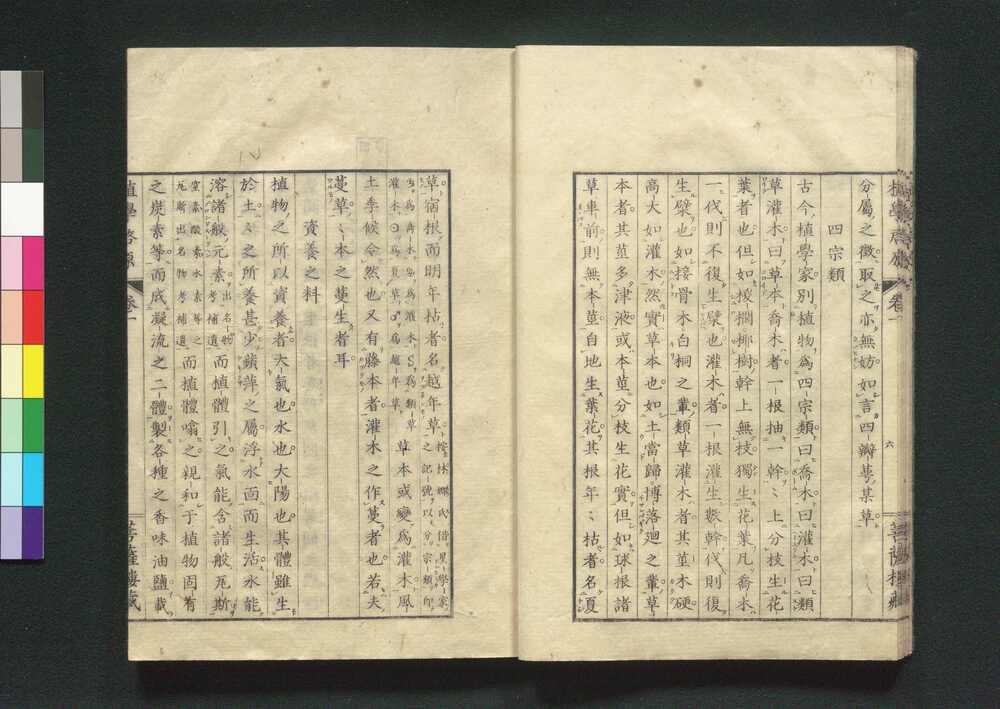 植學啓原 卷一 六 菩薩樓藏
分屬之徵取之亦無妨如言四瓣萼某草
四宗類
古今植學家別植物爲四宗類曰喬木曰灌木曰類
草灌木曰草本喬木者一根抽一幹〻上分枝生花
葉者也但如椶櫚椰樹幹上無枝獨生花葉凡喬木
一伐則不復生孽也灌木者一根灌生數幹伐則復
生孽也如接骨木白桐之輩類草灌木者其莖木硬
高大如灌木然實草本也如土當歸博落廻之輩草
本者其莖多津液或本莖分枝生花實但如球根諸
草車前則無本莖自地生葉花其根年〻枯者名夏
草宿根而明年枯者名越年草
草本或變爲灌木風
土季候令然也又有藤本者灌木之作蔓者也若夫
蔓草〻本之蔓生者耳
資養之料
植物之所以資養者大氣也水也大陽也其體雖生
於土〻之所養甚少蘋萍之屬浮水面而生活水能
溶諸般元素出名物考補遺而植體引之氣能含諸般瓦斯
窒素酸素水素等之瓦斯出名物考補遺而植體噏之親和于植物固有
之炭素等而成凝流之二體製各種之香味油鹽載
植學啓原 卷一 菩薩樓藏